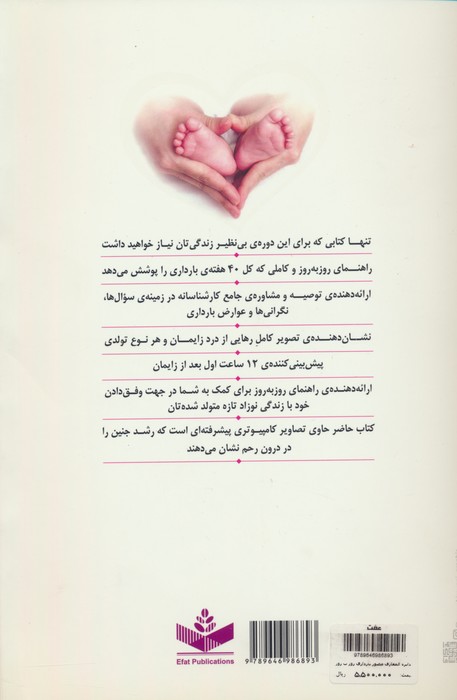 تنهـا کتابی که برای این دوره‌ی بی‌نظیر زندگی‌تان نیـاز خواهیـد داشت
راهنمـای روزبه‌روز و کاملی که کل ۴۰ هفته‌ی بارداری را پوشش می‌دهد
ارائه‌دهنده‌ی توصیـه و مشاوره‌ی جامع کارشناسانه در زمینه‌ی سؤال‌ها،
نگرانی‌ها و عوارض بارداری
نشـان‌دهنده‌ی تصویر کامل رهایی از درد زایمـان و هر نوع تولدی
پیش‌بینی‌کننده‌ی ۱۲ ساعت اول بعد از زایمان
ارائه‌دهنده‌ی راهنمای روزبه‌روز برای کمک به شما در جهت وفق‌دادن
خود با زندگی نوزاد تازه متولد شده‌تان
کتاب حاضر حاوی تصاویر کامپیوتری پیشرفته‌ای است که رشـد جنین را
در درون رحم نشان می‌دهند
Efat Publications
9 789646 986893
عفت
9789646986893
۵,۵۰۰,۰۰۰ ریال